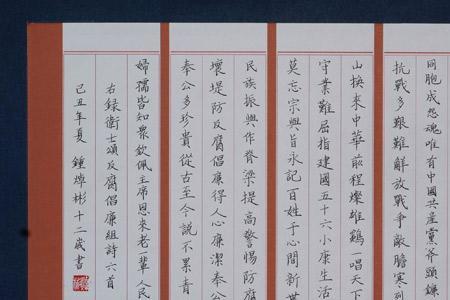 同胞成怨魂唯有中國共產黨斧頭鐮
抗戰多艱難解放戰爭敵膽寒列
山換來中華前程燦雄鷄一唱天下
守業難屈指建國五十六小康生活
莫忘宗興旨永記百姓子心間新世
民族振興作脊梁提高警惕防腐
壞堤防反腐倡廉得人心廉潔奉公
奉公多珍貴從古至今說不累青
婦孺皆知眾欽佩主席恩來老輩人民
右録衛士頌反腐倡廉組詩六首
己丑年夏鍾燁彬十二歲書